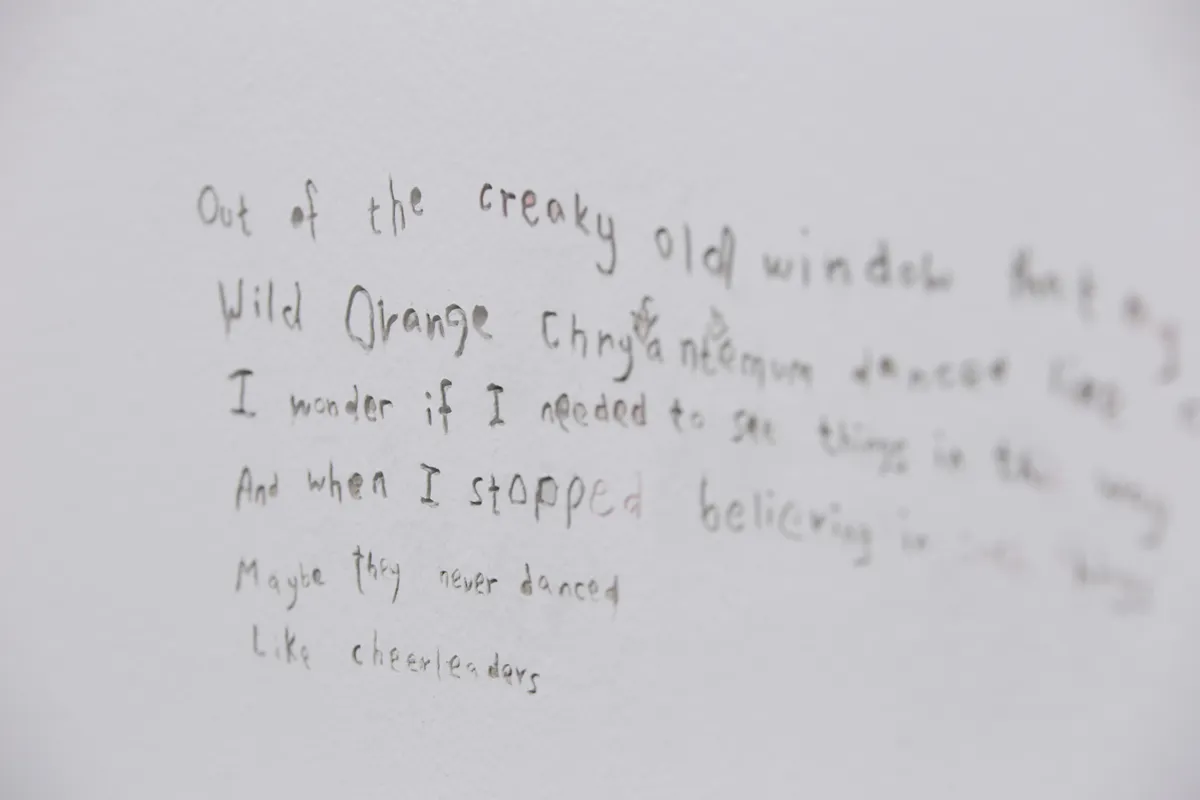 Out of the creaky old window that
Wild Orange Chryſantemum dances like
I wonder if I needed to see things in the way
And when I stopped believing in
Maybe they never danced
Like cheerleaders